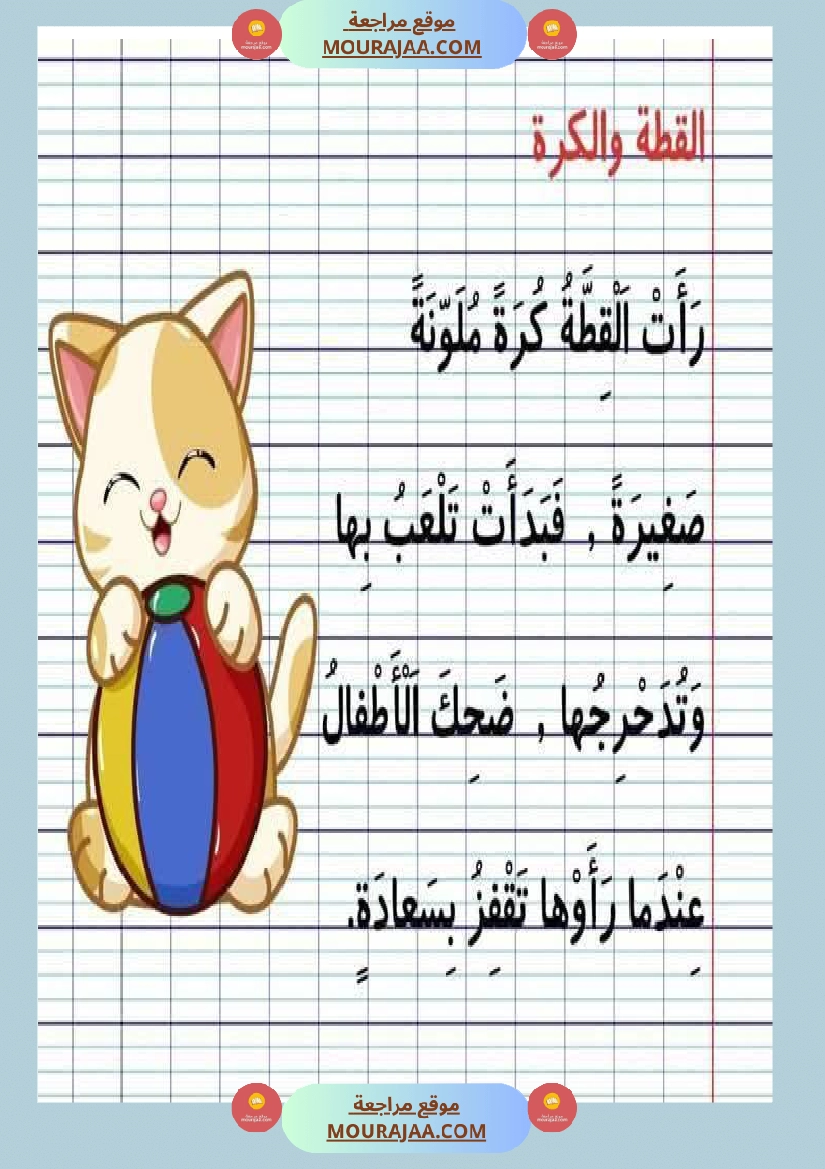 موقع مراجعة
MOURAJAA.COM
القطة والكرة
رَأَتْ اَلْقِطَّةُ كُرَةً مُلَوّنَةً
صَغِيرَةً , فَبَدَأَتْ تَلْعَبُ بِها
وَتُدَحْرِجُها , ضَحِكَ اَلْأَطْفالُ
عِنْدَما رَأَوْها تَقْفِزُ بِسَعادَةٍ.
موقع مراجعة
MOURAJAA.COM